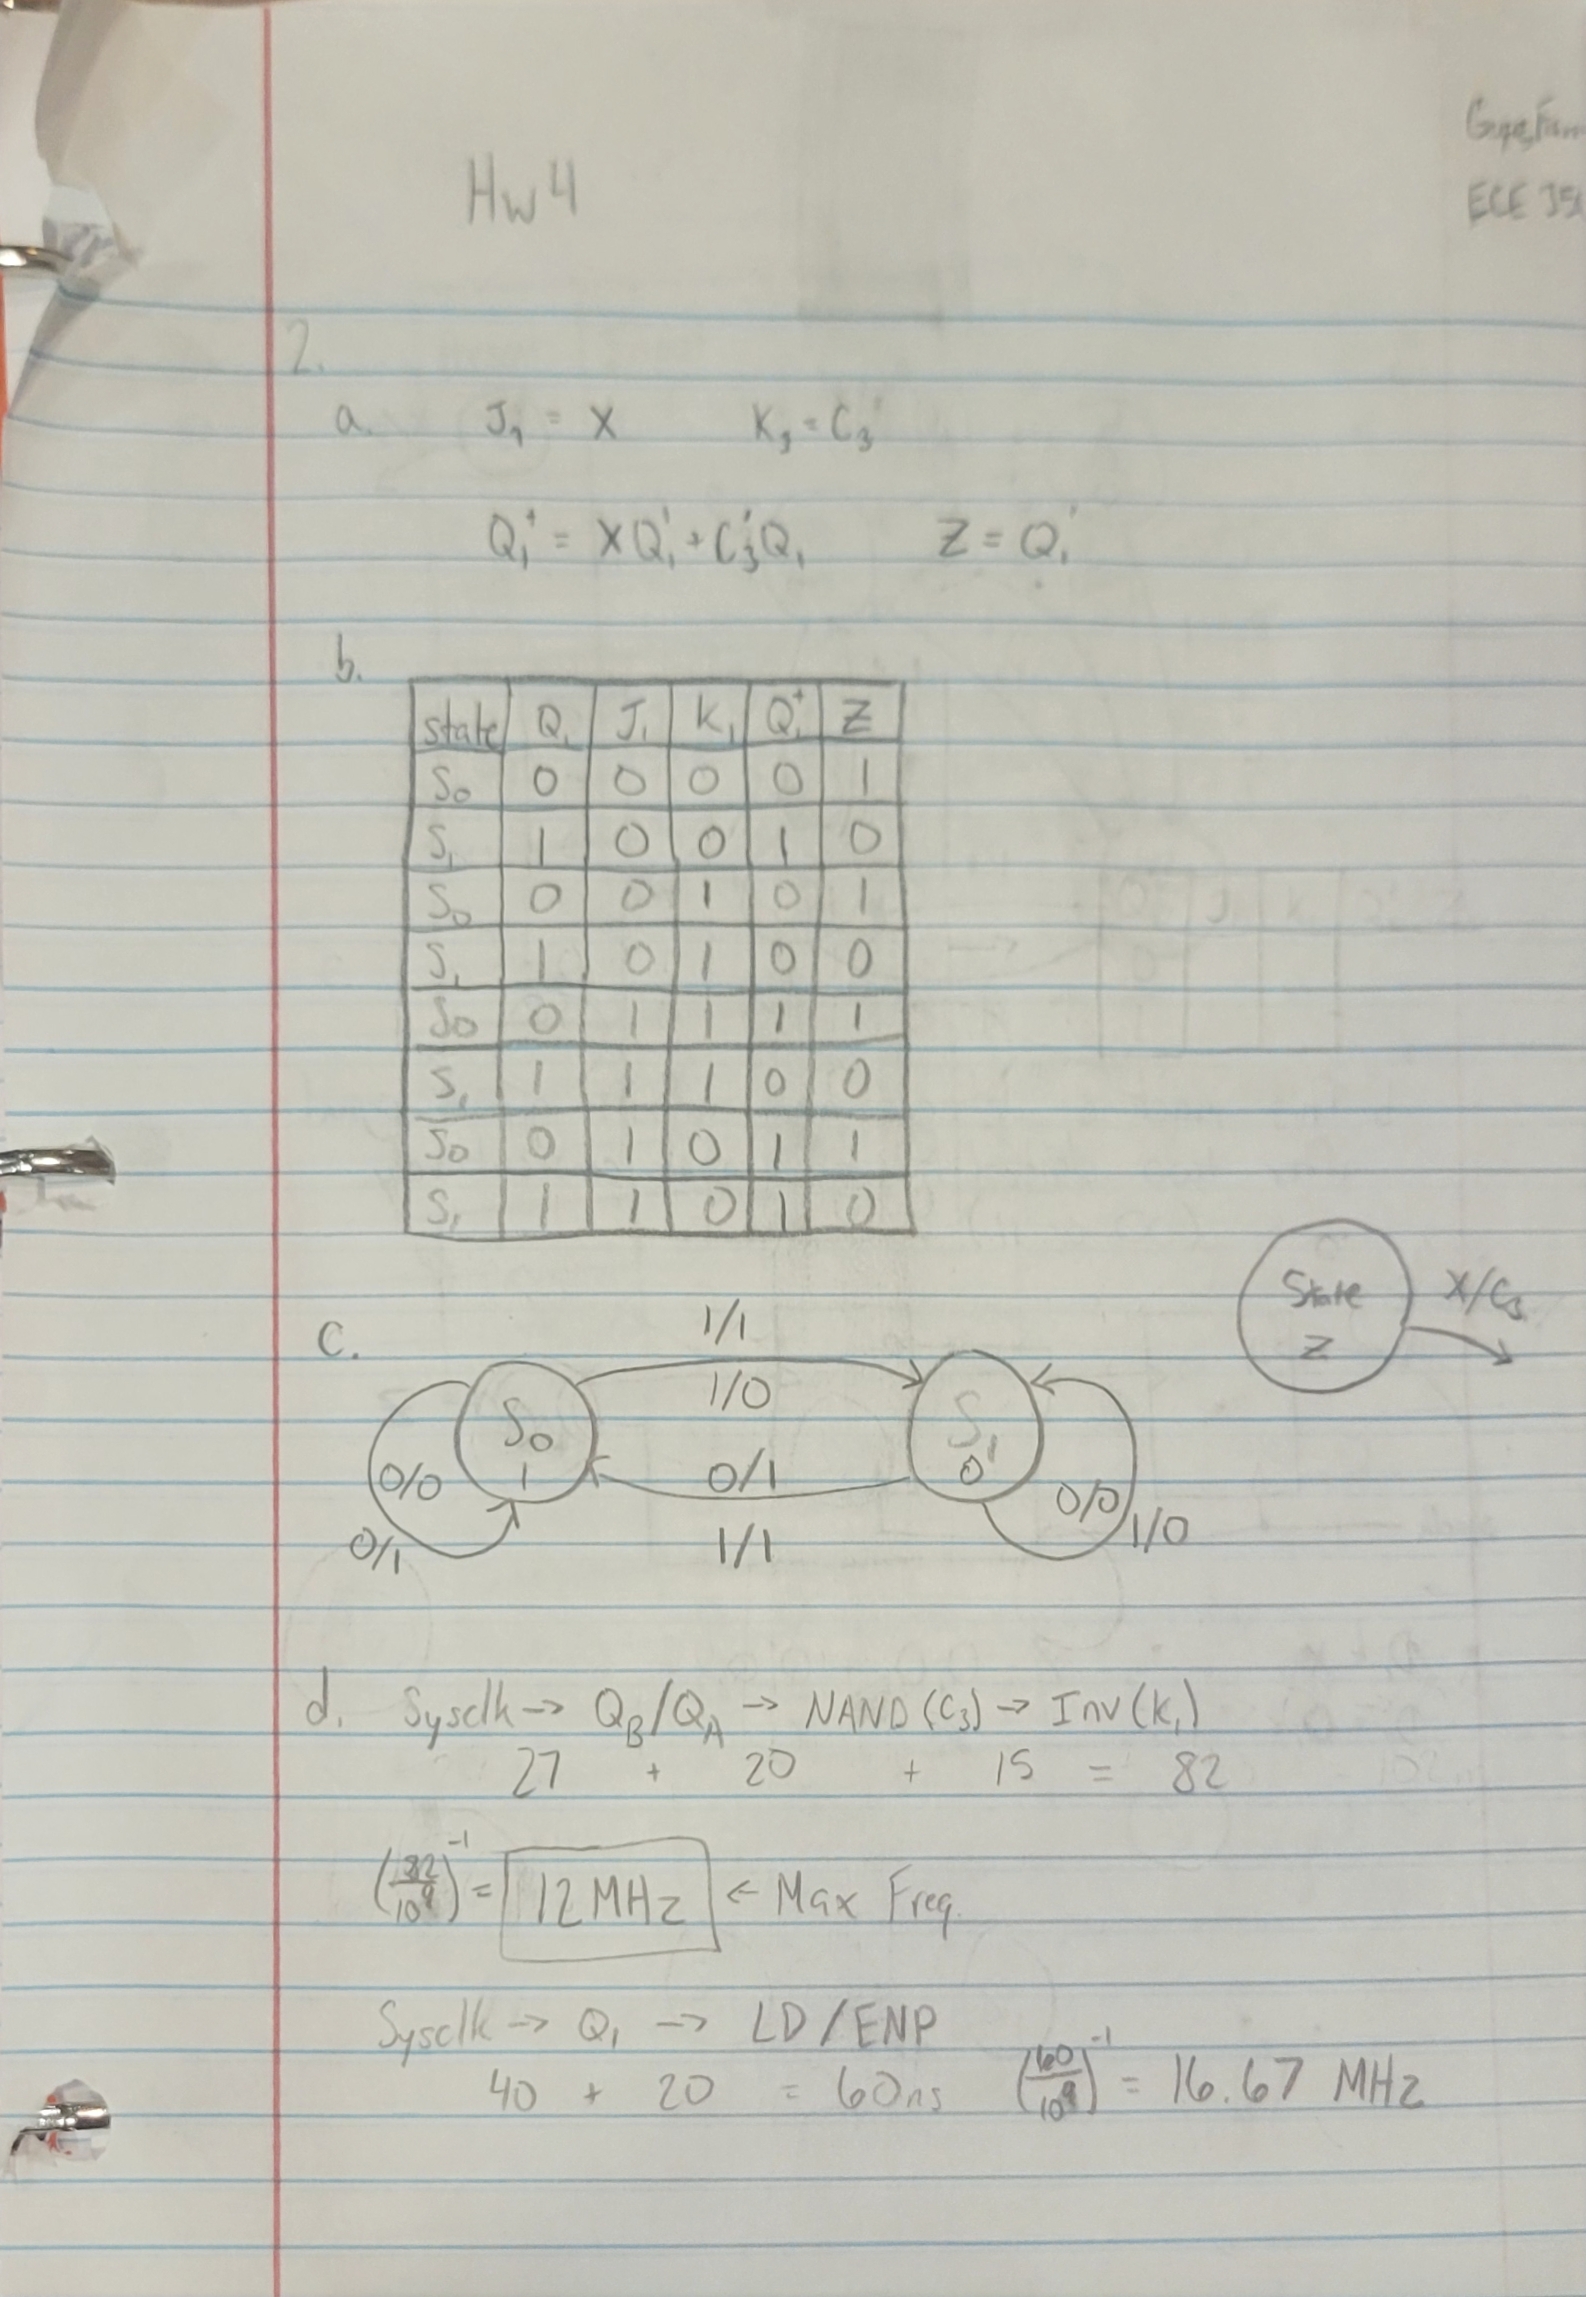 Hw4
ECE
2.
a. J₁ = X K₁ = C₃'
Q₁⁺ = XQ₁' + C₃'Q₁ Z = Q₁'
b.
state Q₁ J₁ K₁ Q₁⁺ Z
S₀ 0 0 0 0 1
S₁ 1 0 0 1 0
S₀ 0 0 1 0 1
S₁ 1 0 1 0 0
S₀ 0 1 1 1 1
S₁ 1 1 1 0 0
S₀ 0 1 0 1 1
S₁ 1 1 0 1 0
State X/C₃
Z
c. 1/1
1/0
S₀ S₁
1 0
0/0 0/1 0/0
0/1 1/1 1/0
d. Sysclk → Q_B/Q_A → NAND(C₃) → Inv(K₁)
27 + 20 + 15 = 82
(82/10⁹)⁻¹ = 12 MHz ← Max Freq.
Sysclk → Q₁ → LD/ENP
40 + 20 = 60ns (60/10⁹)⁻¹ = 16.67 MHz